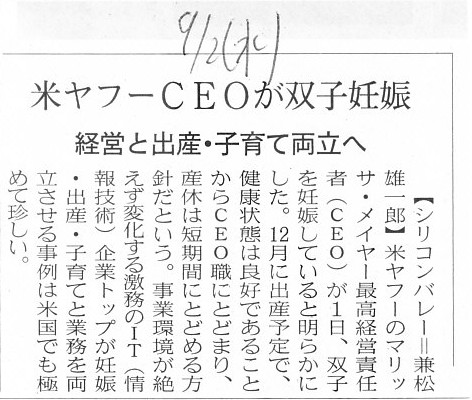 9/2(水)
米ヤフーCEOが双子妊娠
経営と出産・子育て両立へ
【シリコンバレー＝兼松
雄一郎】米ヤフーのマリッ
サ・メイヤー最高経営責任
者（CEO）が1日、双子
を妊娠していると明らかに
した。12月に出産予定で、
健康状態は良好であること
からCEO職にとどまり、
産休は短期間にとどめる方
針だという。事業環境が絶
えず変化する激務のIT（情
報技術）企業トップが妊娠
・出産・子育てと業務を両
立させる事例は米国でも極
めて珍しい。